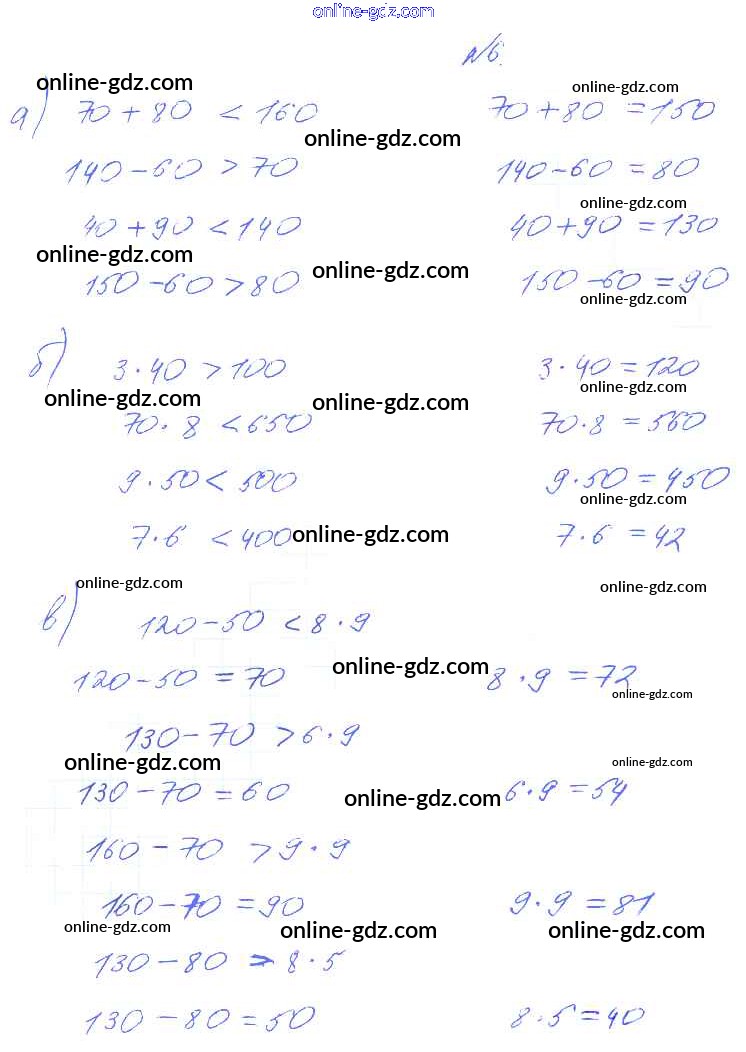 online-gdz.com
№6.
online-gdz.com online-gdz.com
а) 70 + 80 < 160 70 + 80 = 150
online-gdz.com
140 - 60 > 70 140 - 60 = 80
online-gdz.com
40 + 90 < 140 40 + 90 = 130
online-gdz.com online-gdz.com
150 - 60 > 80 150 - 60 = 90
online-gdz.com
б) 3 · 40 > 100 3 · 40 = 120
online-gdz.com online-gdz.com online-gdz.com
70 · 8 < 650 70 · 8 = 560
9 · 50 < 500 9 · 50 = 450
online-gdz.com
7 · 6 < 400 online-gdz.com 7 · 6 = 42
online-gdz.com online-gdz.com
в) 120 - 50 < 8 · 9
120 - 50 = 70 online-gdz.com 8 · 9 = 72
online-gdz.com
130 - 70 > 6 · 9
online-gdz.com online-gdz.com
130 - 70 = 60 online-gdz.com 6 · 9 = 54
160 - 70 > 9 · 9
160 - 70 = 90 9 · 9 = 81
online-gdz.com online-gdz.com online-gdz.com
130 - 80 > 8 · 5
130 - 80 = 50 8 · 5 = 40